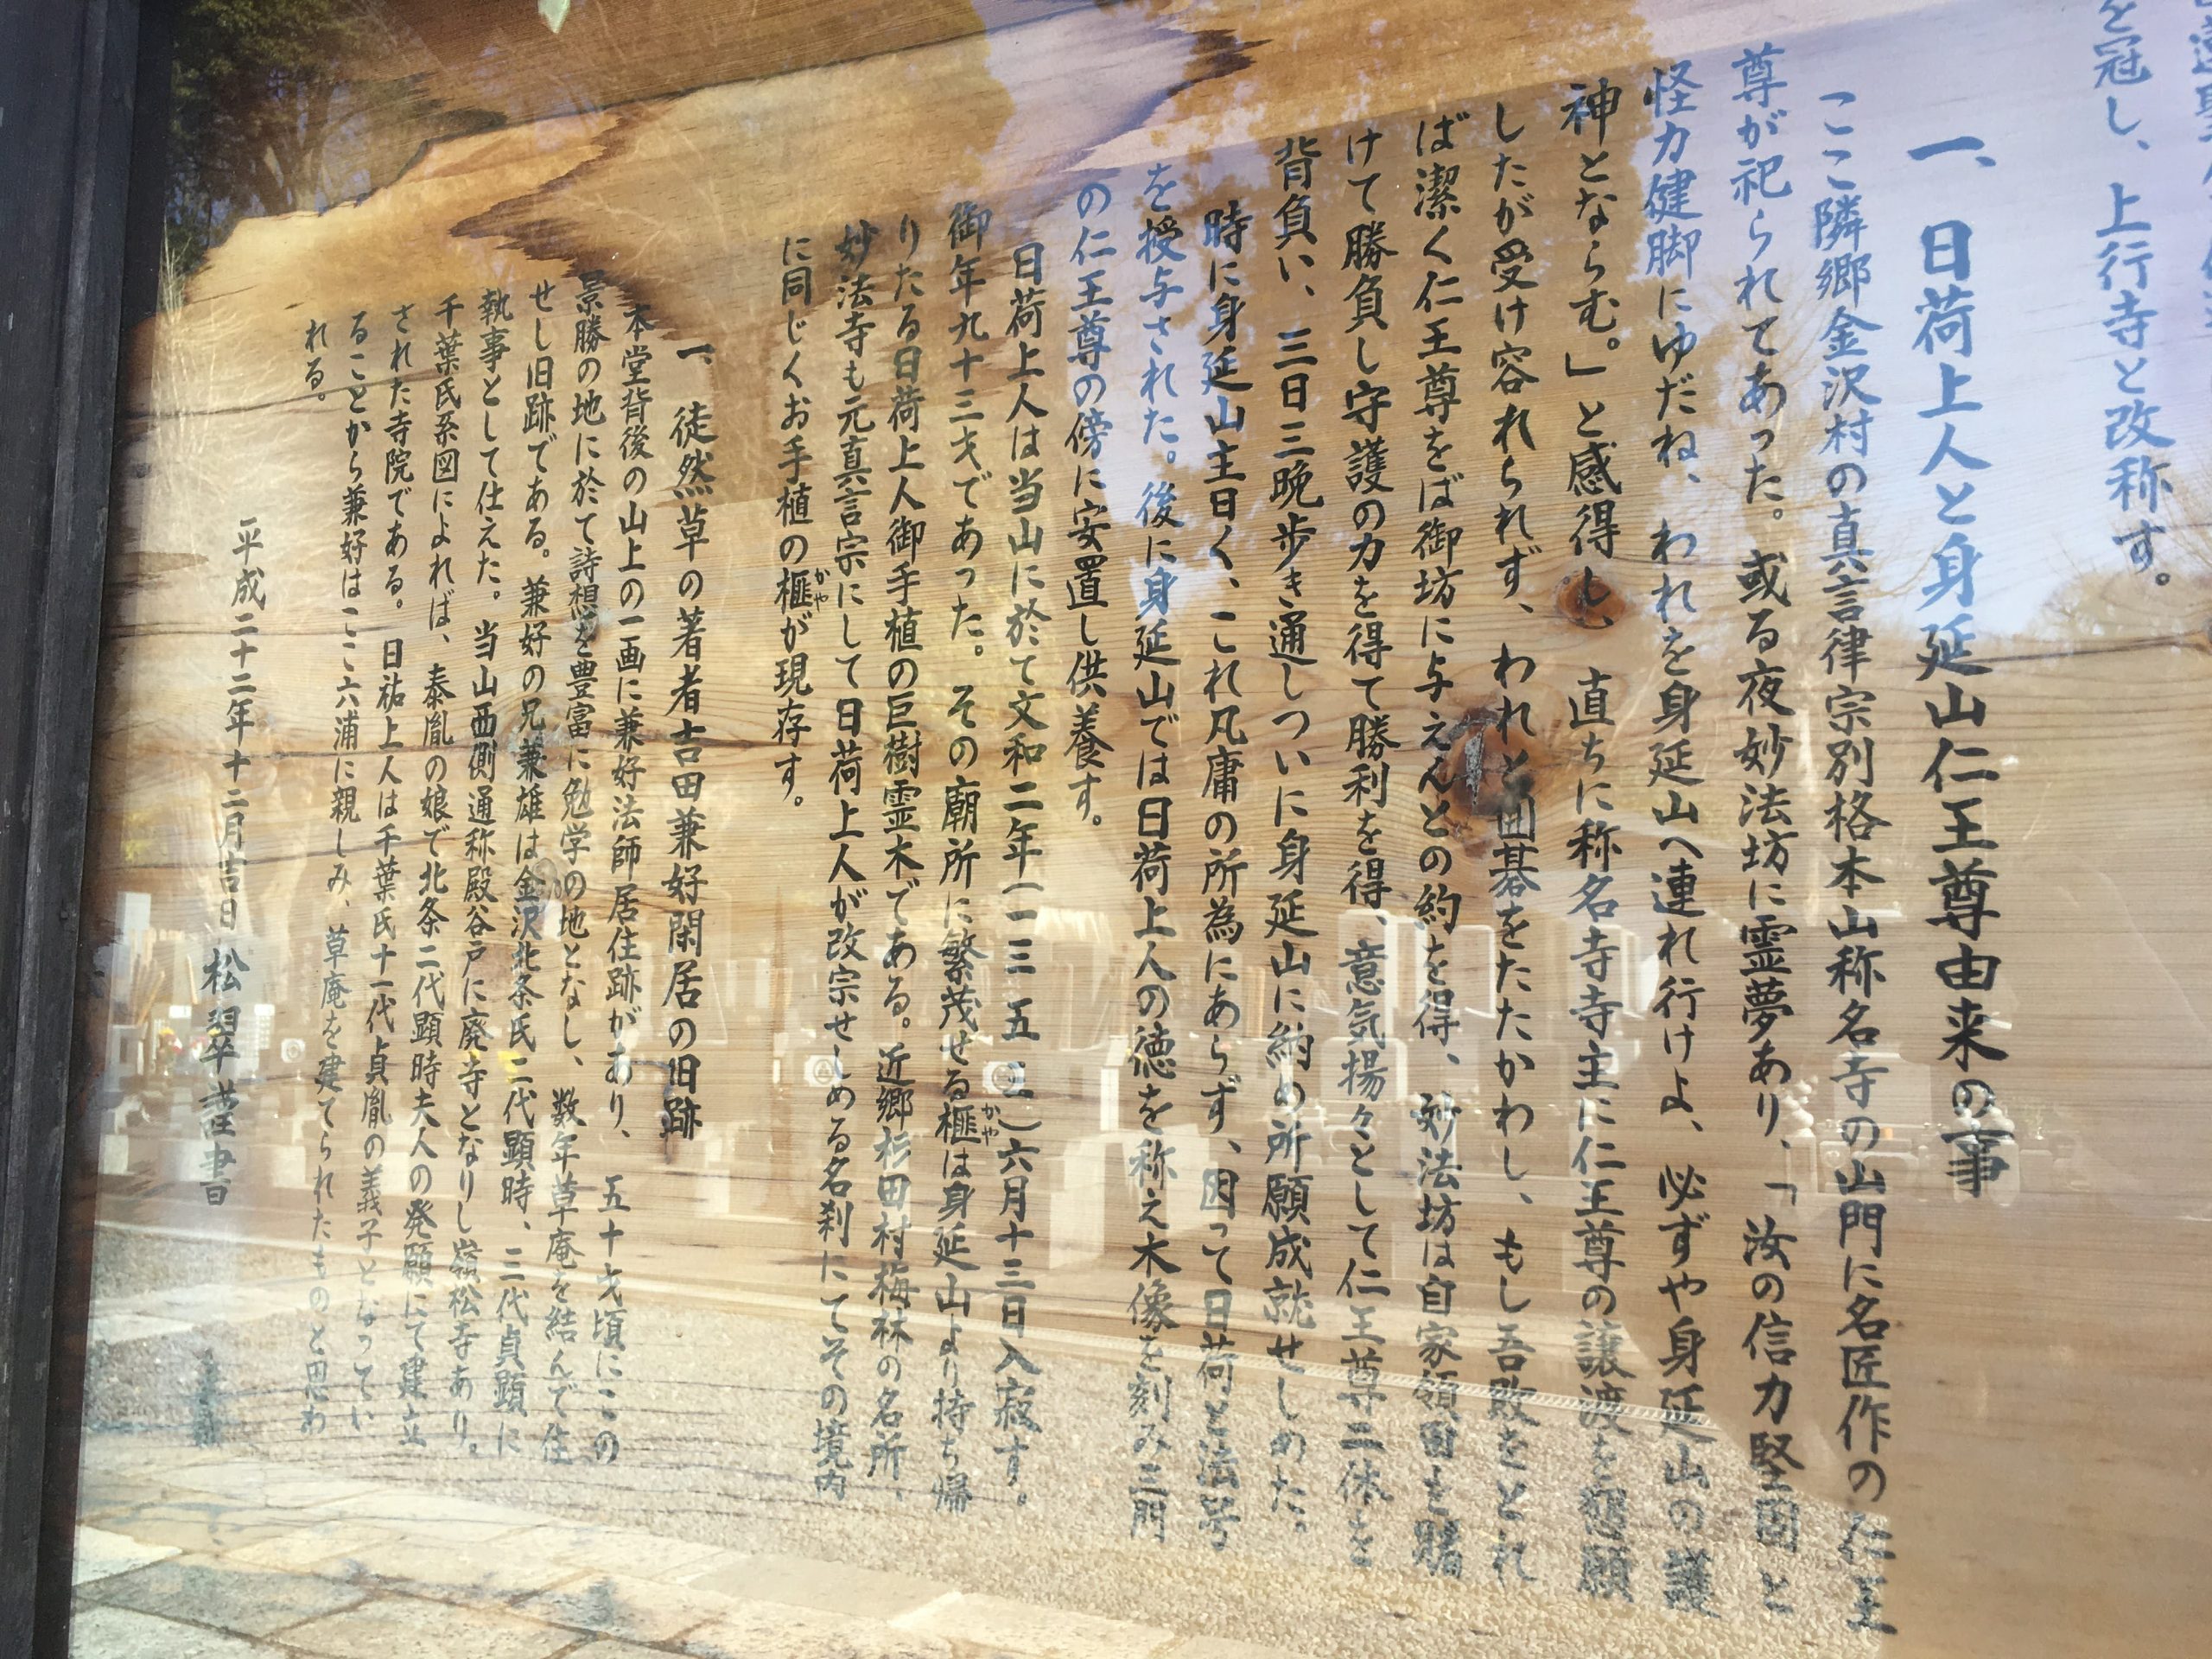 を冠し、上行寺と改称す。
一、日荷上人と身延山仁王尊由来の事
ここ隣郷金沢村の真言律宗別格本山称名寺の山門に名匠作の仁王
尊が祀られてあった。或る夜妙法坊に霊夢あり、「汝の信力堅固と
怪力健脚にゆだね、われを身延山へ連れ行けよ、必ずや身延山の護
神とならむ。」と感得し、直ちに称名寺寺主に仁王尊の譲渡を懇願
したが受け容れられず、われと囲碁をたたかわし、もし吾敗をとれ
ば潔く仁王尊をば御坊に与えんとの約を得、妙法坊は自家領田を賭
けて勝負し守護の力を得て勝利を得、意気揚々として仁王尊二体を
背負い、三日三晩歩き通しついに身延山に納め所願成就せしめた。
時に身延山主曰く、これ凡庸の所為にあらず、因って日荷と法号
を授与された。後に身延山では日荷上人の徳を称え木像を刻み三門
の仁王尊の傍に安置し供養す。
日荷上人は当山に於て文和二年(一三五三)六月十三日入寂す。
御年九十三才であった。その廟所に繁茂せる榧かやは身延山より持ち帰
りたる日荷上人御手植の巨樹霊木である。近郷杉田村梅林の名所、
妙法寺も元真言宗にして日荷上人が改宗せしめる名刹にてその境内
に同じくお手植の榧かやが現存す。
一、徒然草の著者吉田兼好閑居の旧跡
本堂背後の山上の一画に兼好法師居住跡があり、五十才頃にこの
景勝の地に於て詩想を豊富に勉学の地となし、数年草庵を結んで住
せし旧跡である。兼好の兄兼雄は金沢北条氏二代顕時、三代貞顕に
執事として仕えた。当山西側通称殿谷戸に廃寺となりし嶺松寺あり。
千葉氏系図によれば、泰胤の娘で北条二代顕時夫人の発願にて建立
された寺院である。日祐上人は千葉氏十一代貞胤の義子となってい
ることから兼好はここ六浦に親しみ、草庵を建てられたものと思わ
れる。
平成二十二年十二月吉日 松翠謹書